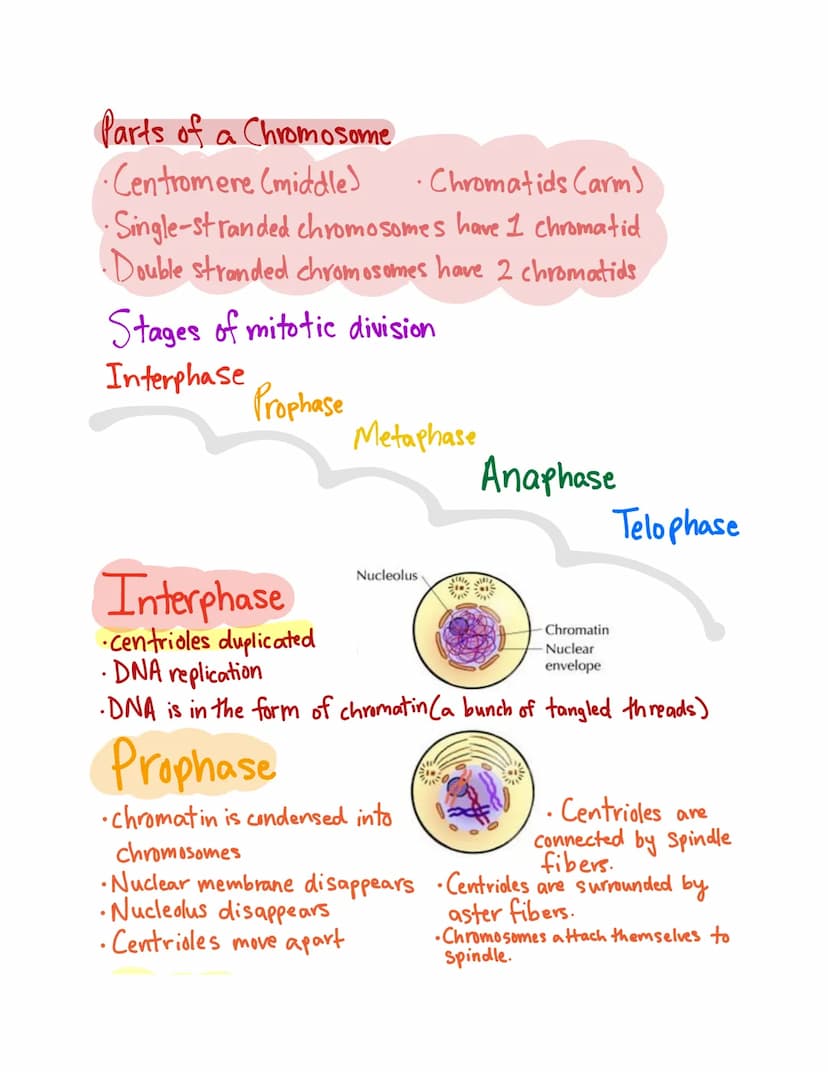 Parts of a Chromosome
· Centromere (middle) · Chromatids (arm)
· Single-stranded chromosomes have 1 chromatid
· Double stranded chromosomes have 2 chromatids
Stages of mitotic division
Interphase
Prophase
Metaphase
Anaphase
Telophase
Interphase
· centrioles duplicated
· DNA replication
· DNA is in the form of chromatin (a bunch of tangled threads)
Nucleolus
Chromatin
Nuclear
envelope
Prophase
· chromatin is condensed into
chromosomes
· Nuclear membrane disappears
· Nucleolus disappears
· Centrioles move apart
· Centrioles are
connected by Spindle
fibers.
· Centrioles are surrounded by
aster fibers.
· Chromosomes attach themselves to
Spindle.